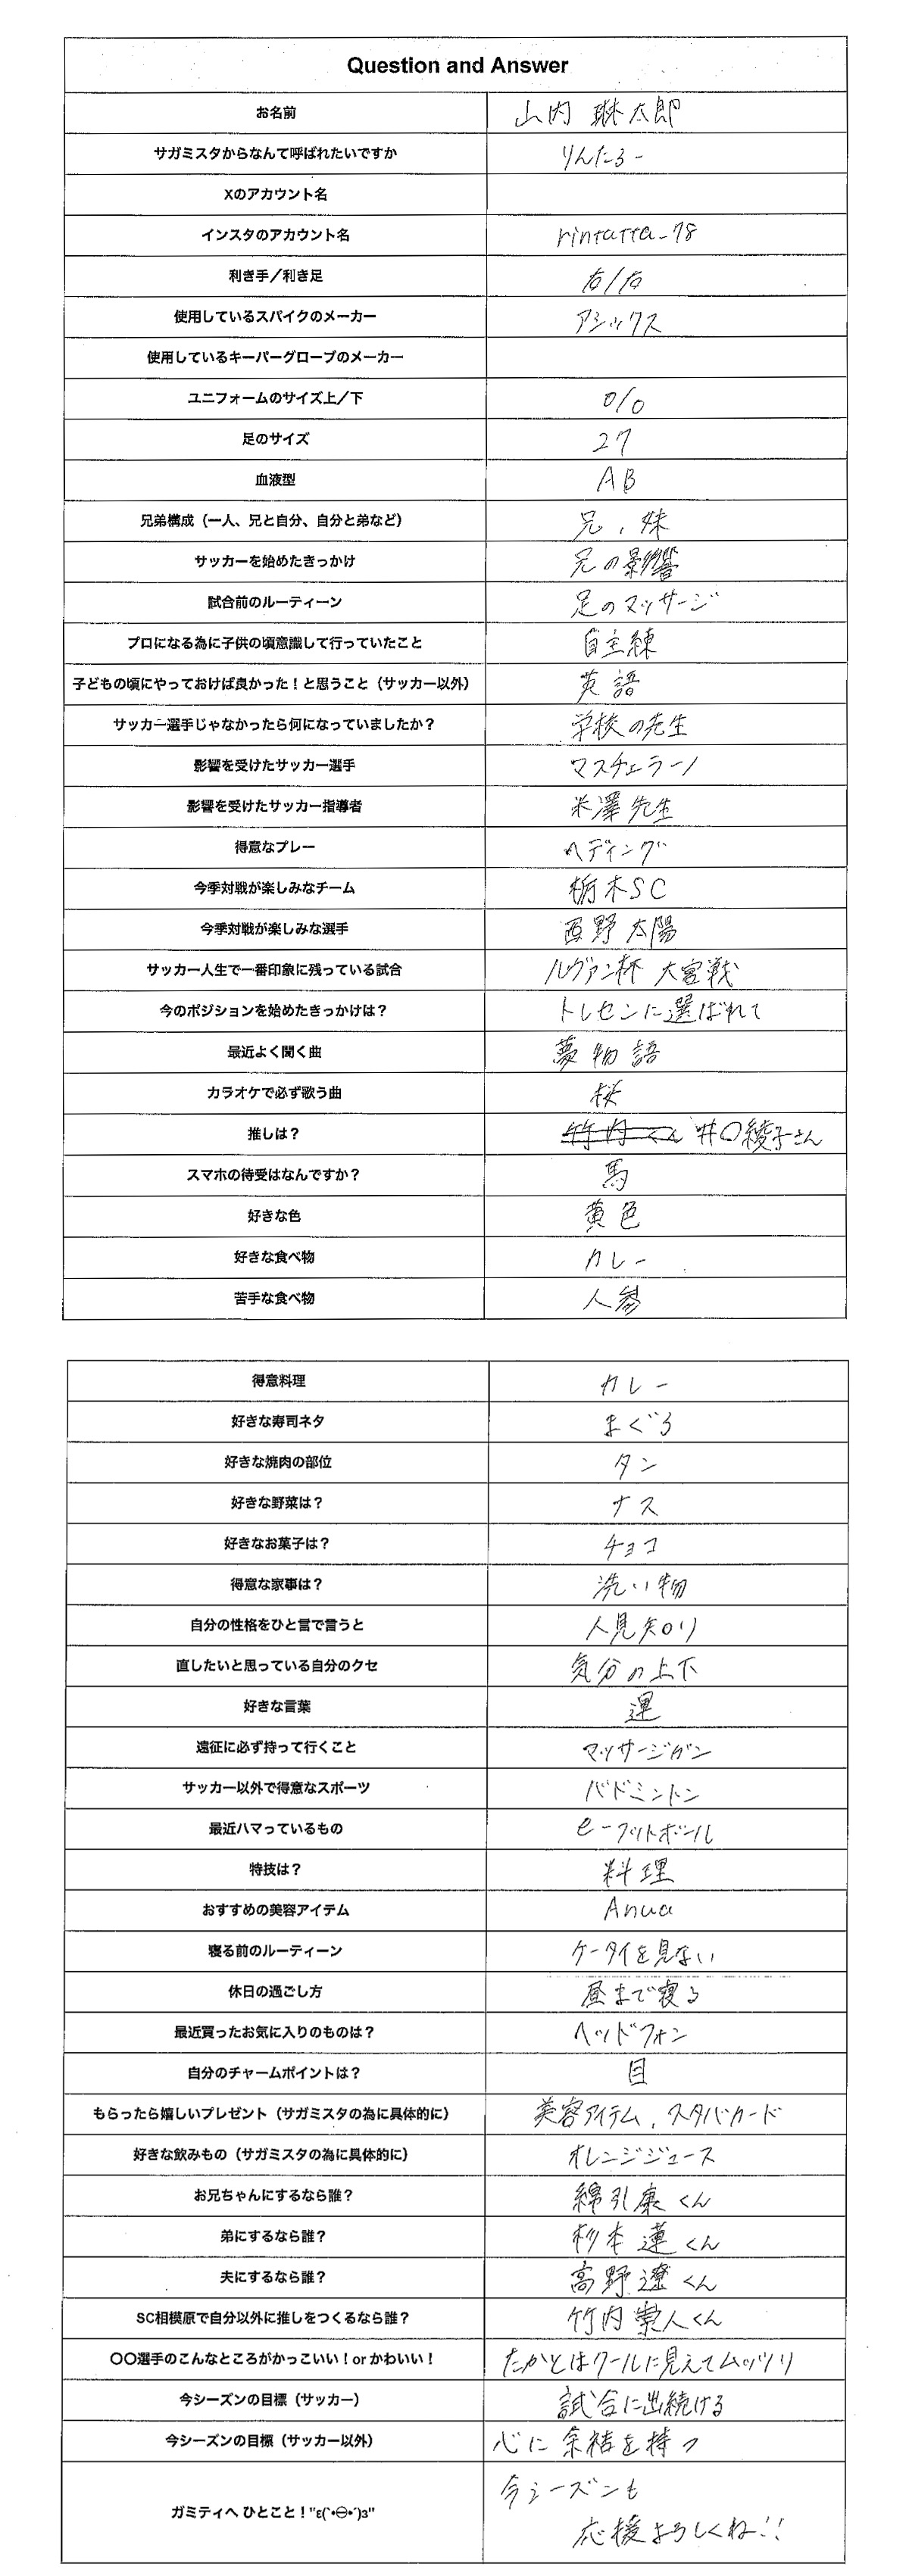 Question and Answer
お名前 山内 琳太郎
サガミスタからなんて呼ばれたいですか りんたろー
Xのアカウント名
インスタのアカウント名 rintatta_78
利き手／利き足 右/右
使用しているスパイクのメーカー アシックス
使用しているキーパーグローブのメーカー
ユニフォームのサイズ上／下 O/O
足のサイズ 27
血液型 AB
兄弟構成（一人、兄と自分、自分と弟など） 兄、妹
サッカーを始めたきっかけ 兄の影響
試合前のルーティーン 足のマッサージ
プロになる為に子供の頃意識して行っていたこと 自主練
子どもの頃にやっておけば良かった！と思うこと（サッカー以外） 英語
サッカー選手じゃなかったら何になっていましたか？ 学校の先生
影響を受けたサッカー選手 マスチェラーノ
影響を受けたサッカー指導者 米澤先生
得意なプレー ヘディング
今季対戦が楽しみなチーム 栃木SC
今季対戦が楽しみな選手 西野太陽
サッカー人生で一番印象に残っている試合 ルヴァン杯 大宮戦
今のポジションを始めたきっかけは？ トレセンに選ばれて
最近よく聞く曲 夢物語
カラオケで必ず歌う曲 桜
推しは？ 竹内くん 井口綾子さん
スマホの待受はなんですか？ 馬
好きな色 黄色
好きな食べ物 カレー
苦手な食べ物 人参
得意料理 カレー
好きな寿司ネタ まぐろ
好きな焼肉の部位 タン
好きな野菜は？ ナス
好きなお菓子は？ チョコ
得意な家事は？ 洗い物
自分の性格をひと言で言うと 人見知り
直したいと思っている自分のクセ 気分の上下
好きな言葉 運
遠征に必ず持って行くこと マッサージガン
サッカー以外で得意なスポーツ バドミントン
最近ハマっているもの e-フットボール
特技は？ 料理
おすすめの美容アイテム Anua
寝る前のルーティーン ケータイを見ない
休日の過ごし方 昼まで寝る
最近買ったお気に入りのものは？ ヘッドフォン
自分のチャームポイントは？ 目
もらったら嬉しいプレゼント（サガミスタの為に具体的に） 美容アイテム、スタバカード
好きな飲みもの（サガミスタの為に具体的に） オレンジジュース
お兄ちゃんにするなら誰？ 綿引康くん
弟にするなら誰？ 杉本蓮くん
夫にするなら誰？ 高野遼くん
SC相模原で自分以外に推しをつくるなら誰？ 竹内崇人くん
〇〇選手のこんなところがかっこいい！or かわいい！ たかとはクールに見えてムッツリ
今シーズンの目標（サッカー） 試合に出続ける
今シーズンの目標（サッカー以外） 心に余裕を持つ
ガミティへ ひとこと！"ε(`•㊀•´)з" 今シーズンも
応援よろしくね!!